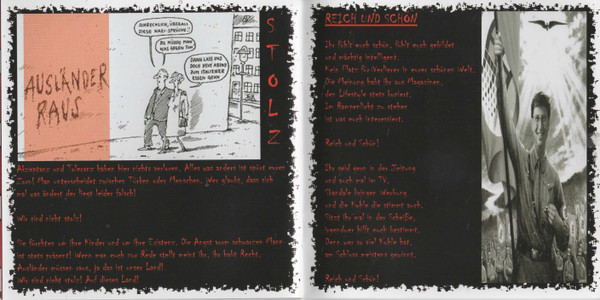 STOLZ
SCHRECKLICH, ÜBERALL
DIESE NAZI-SPRÜCHE!
DA MÜSSTE MAN
WAS GEGEN TUN!
DANN LASS UNS
DOCH HEUT ABEND
ZUM ITALIENER
ESSEN GEHN
AUSLÄNDER
RAUS
Akzeptanz und Toleranz haben hier nichts verloren, Alles was anders ist spürt euren
Zorn! Man unterscheidet zwischen Türken oder Menschen, Wer glaubt, dass sich
mal was ändert der liegt leider falsch!
Wir sind nicht stolz!
Sie fürchten um ihre Kinder und um ihre Existenz, Die Angst vorm schwarzen Mann
ist stets präsent! Wenn man euch zur Rede stellt meint ihr, ihr habt Recht,
Ausländer müssen raus, ja das ist unser Land!
Wir sind nicht stolz! Auf dieses Land!
REICH UND SCHÖN
Ihr fühlt euch schön, fühlt euch gebildet
und mächtig intelligent,
Kein Platz für Verlierer in eurer schönen Welt,
Die Meinung habt ihr aus Magazinen,
den Lifestyle stets kopiert,
Im Rampenlicht zu stehen
ist was euch interessiert,
Reich und Schön!
Ihr seid gern in der Zeitung
und auch mal im TV,
Skandale bringen Werbung
und die Kohle die stimmt auch,
Sitzt ihr mal in der Scheiße,
irgendwer hilft euch bestimmt,
Denn wer so viel Kohle hat,
am Schluss meistens gewinnt,
Reich und Schön!